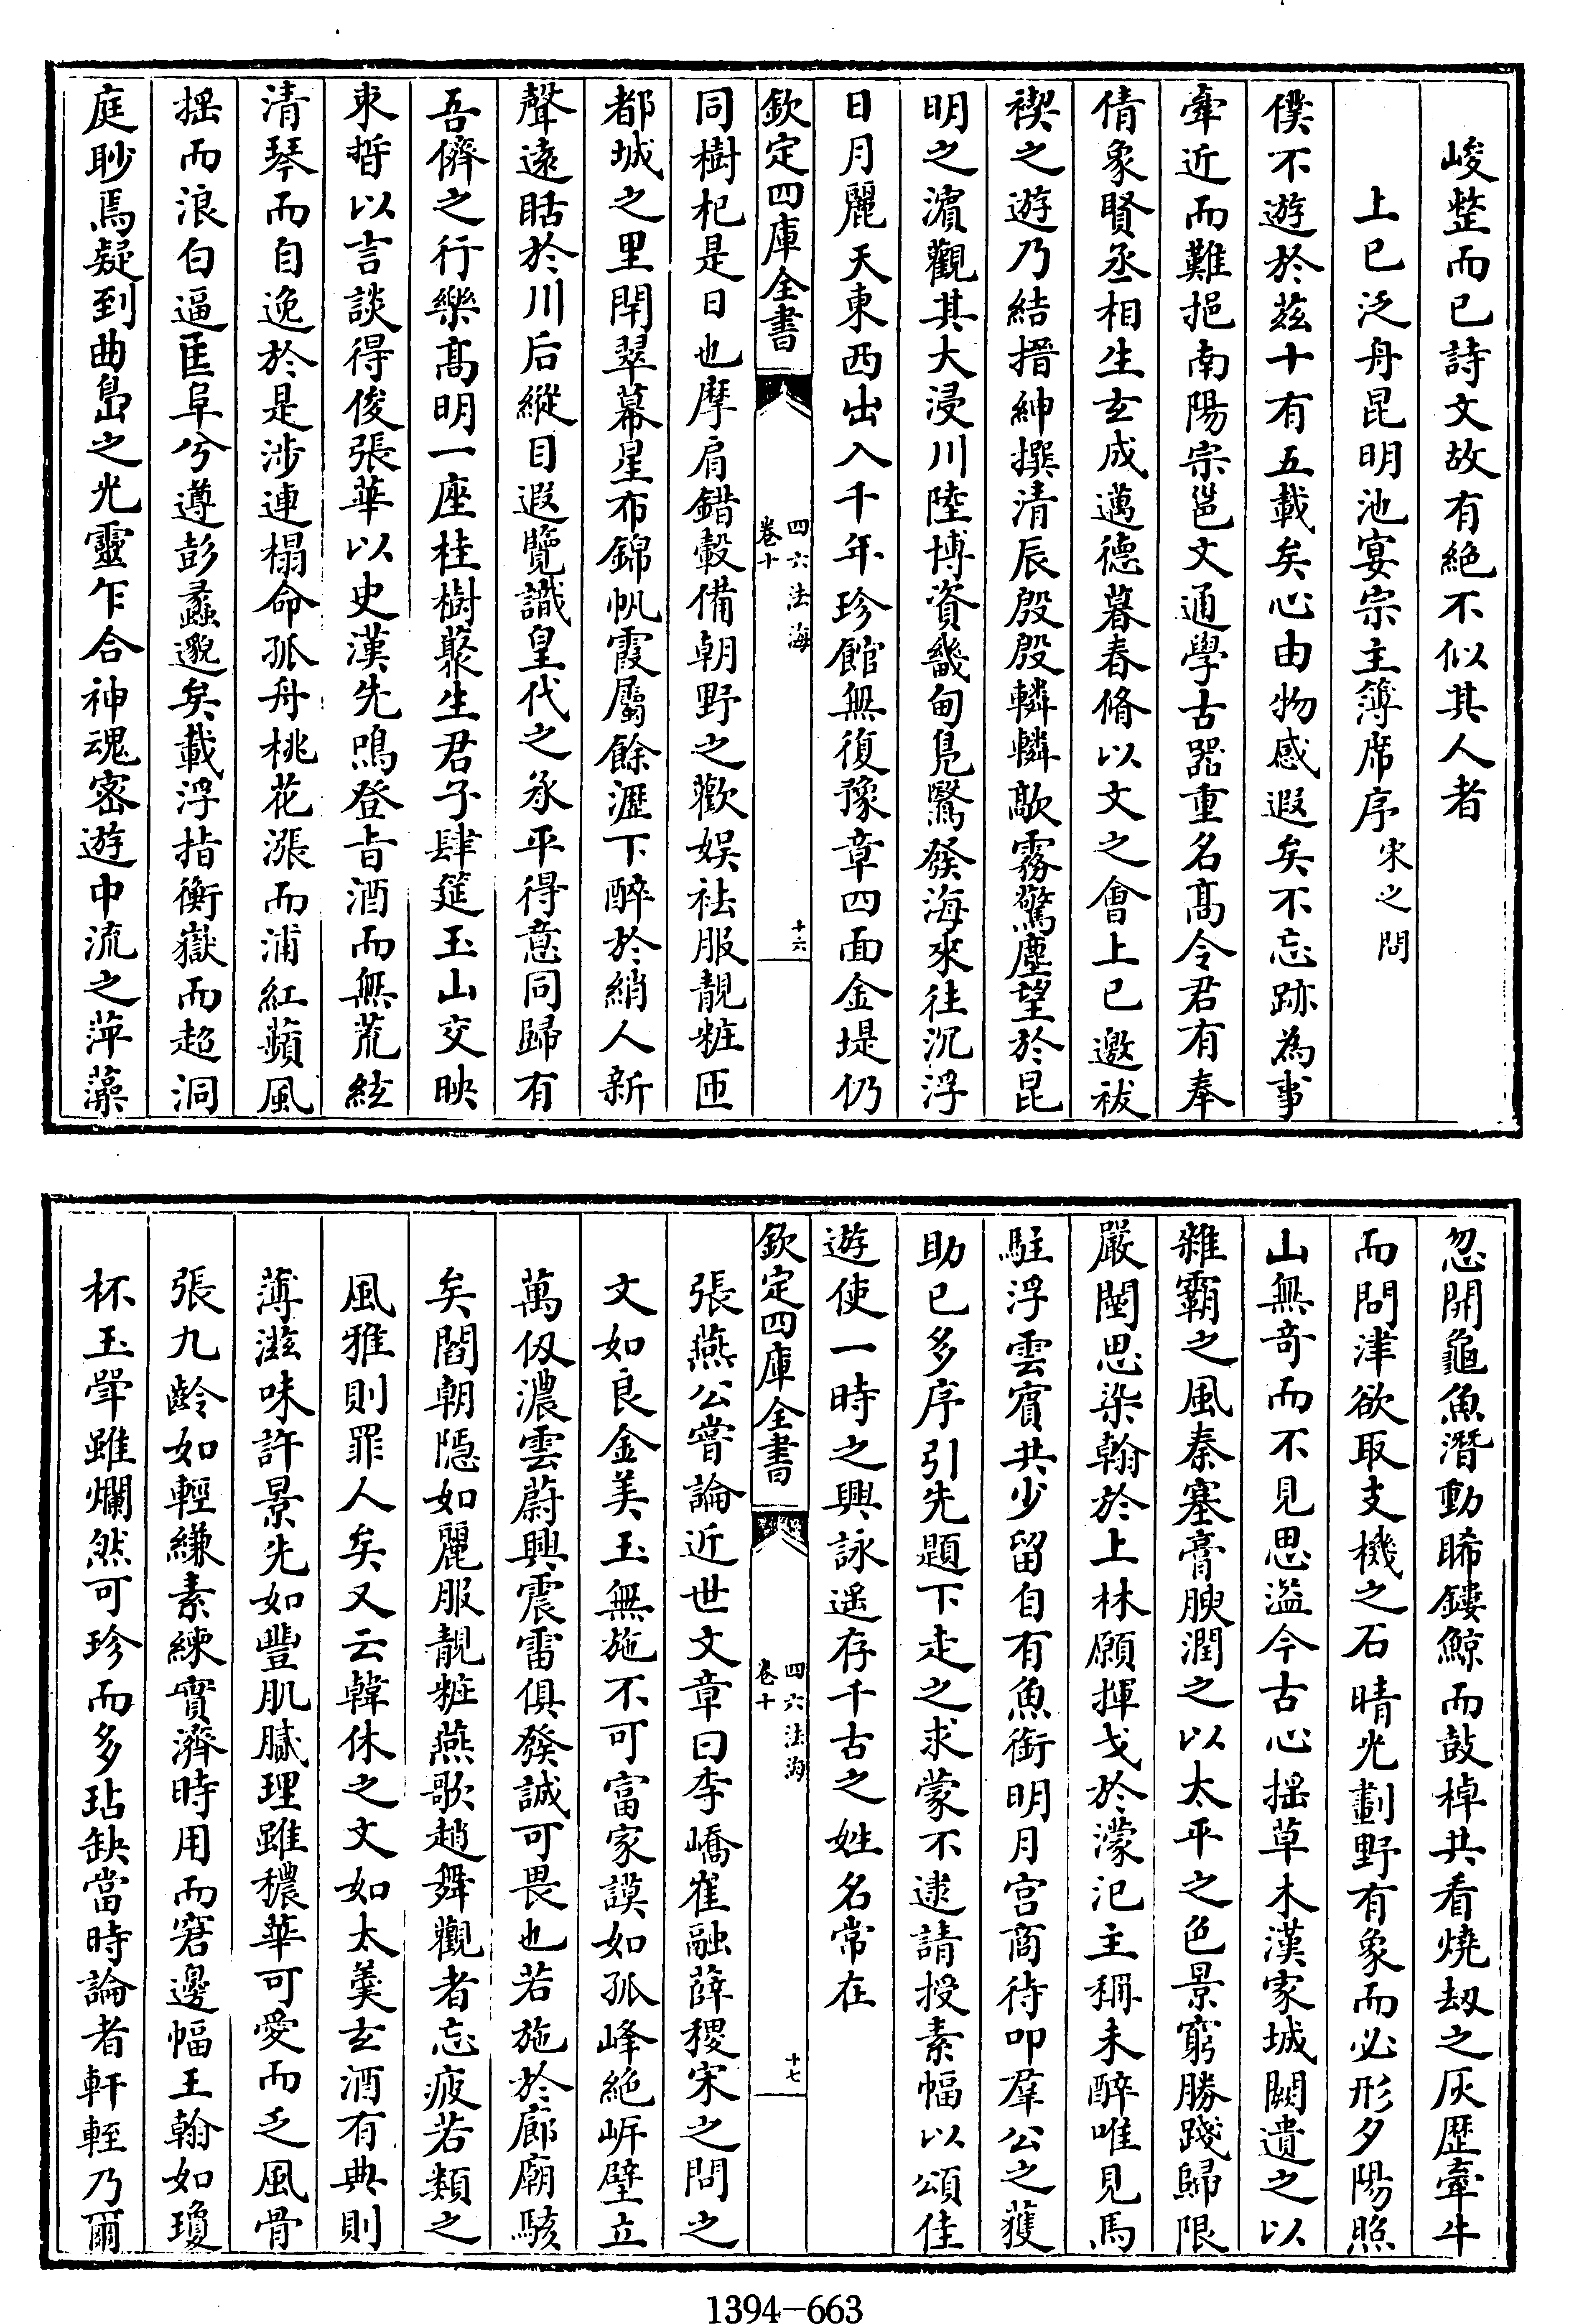 峻整而已詩文故有絶不似其人者
上已泛舟昆明池宴宗主簿席序宋之問
僕不遊於茲十有五載矣心由物感遐矣不忘跡為事
牽近而難挹南陽宗邕文通學古器重名髙令君有奉
倩象賢丞相生玄成邁德暮春脩以文之會上已邀祓
禊之遊乃結搢紳撰清辰殷殷轔轔歊霧驚塵望於昆
明之濵觀其大浸川陸博資畿甸鳬鷖發海來往沉浮
日月麗天東西出入千年珍館無復豫章四面金堤仍
欽定四庫全書
四六法海
卷十
十六
同樹杞是日也摩肩錯轂備朝野之歡娱袨服靚粧匝
都城之里閈翠幕星布錦帆霞屬餘瀝下醉於綃人新
聲遠聒於川后縱目遐覽識皇代之承平得意同歸有
吾儕之行樂髙明一座桂樹藂生君子肆筵玉山交映
夾晢以言談得俊張華以史漢先鳴登㫖酒而無荒絃
清琴而自逸於是涉連榻命孤舟桃花漲而浦紅蘋風
揺而浪白逼匡阜兮遵彭蠡邈矣載浮指衡嶽而超洞
庭眇焉疑到曲島之光靈乍合神魂密遊中流之萍藻
忽開龜魚潛動晞鏤鯨而鼓棹共看燒刼之灰歴牽牛
而問津欲取支機之石晴光劃野有象而必形夕陽照
山無竒而不見思溢今古心揺草木漢家城闕遺之以
雜霸之風秦塞膏腴潤之以太平之色景窮勝踐歸限
嚴闉思染翰於上林願揮戈於濛汜主稱未醉唯見馬
駐浮雲賓共少留自有魚銜明月宫商待叩羣公之獲
助已多序引先題下走之求蒙不逮請授素幅以頌佳
遊使一時之興詠遥存千古之姓名常在
欽定四庫全書
四六法海
卷十
十七
張燕公嘗論近世文章曰李嶠崔融薛稷宋之問之
文如良金美玉無施不可富家謨如孤峰絶㟁壁立
萬仭濃雲蔚興震雷俱發誠可畏也若施於廊廟駭
矣閻朝隠如麗服靚粧燕歌趙舞觀者忘疲若類之
風雅則罪人矣又云韓休之文如太羮玄酒有典則
薄滋味許景先如豐肌膩理雖穠華可愛而乏風骨
張九齡如輕縑素練實濟時用而窘邊幅王翰如瓊
杯玉斝雖爛然可珍而多玷缺當時論者軒輊乃爾
1394-663